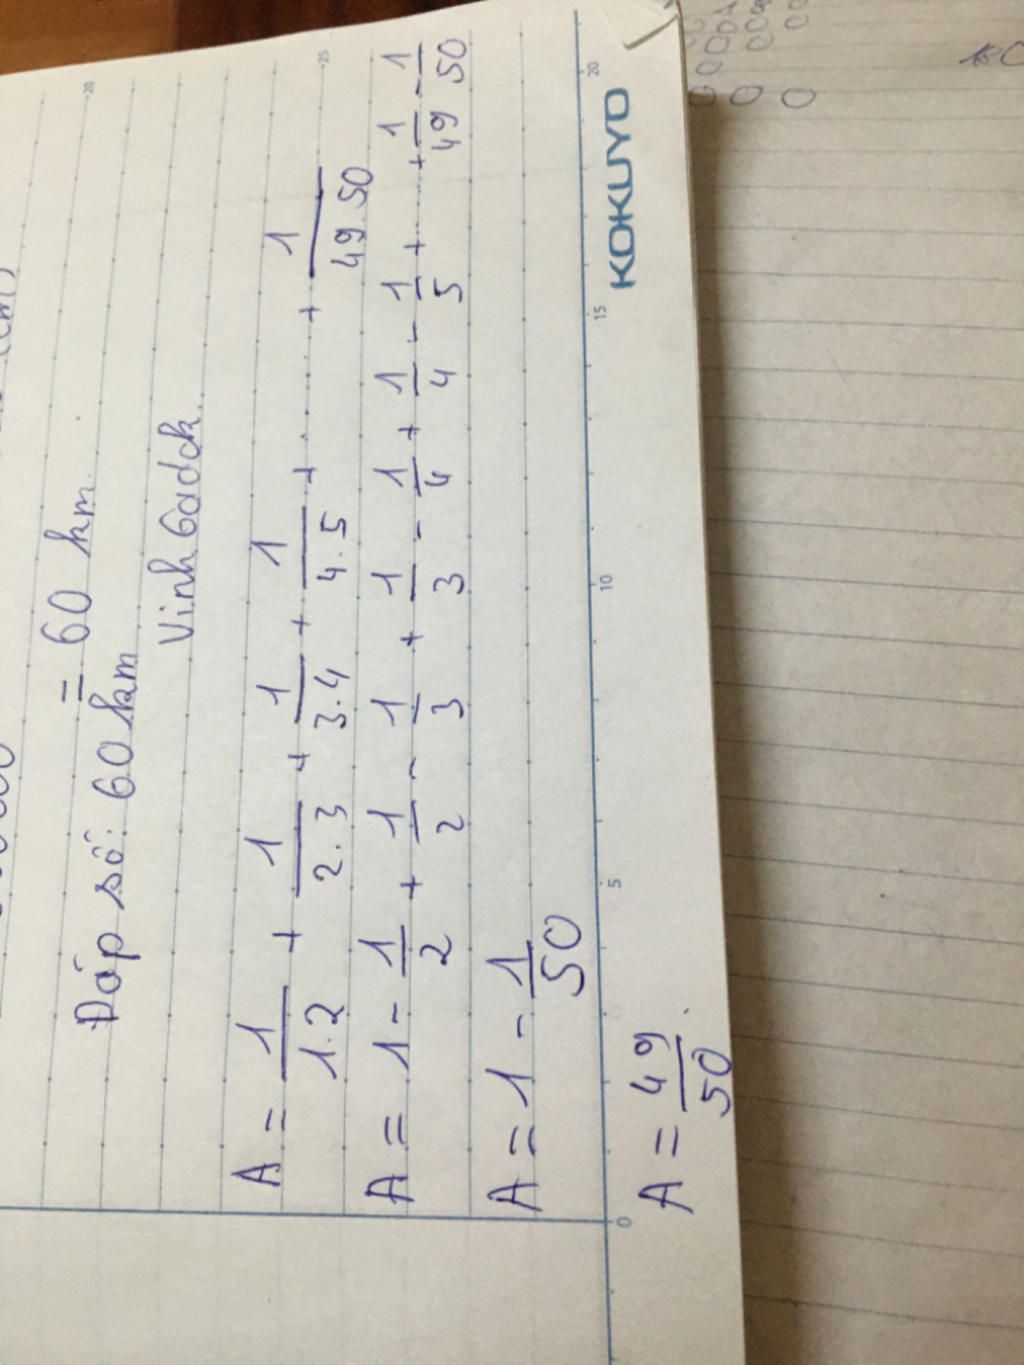 = 60 km
Đáp số: 60 km
Vinh Gadck
A = 1/1.2 + 1/2.3 + 1/3.4 + 1/4.5 + ...... + 1/49.50
A = 1 - 1/2 + 1/2 - 1/3 + 1/3 - 1/4 + 1/4 - 1/5 + ...... + 1/49 - 1/50
A = 1 - 1/50
A = 49/50.
KOKUYO
0 5 10 15 20
25
20